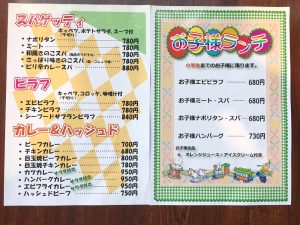 スパゲッティ
キャベツ、ポテトサラダ、スープ付
ナポリタン 780円
ミート 780円
和風きのこスパ 780円
さっぱり味きのこスパ 780円
ピリ辛カレースパ 880円
ピラフ
キャベツ、コロッケ、味噌汁付
エビピラフ 780円
チキンピラフ 780円
シーフードサフランピラフ 880円
カレー&ハッシュド
ビーフカレー 700円
チキンカレー 680円
目玉焼ビーフカレー 800円
目玉焼チキンカレー 780円
カツカレー 950円
ハンバーグカレー 950円
エビフライカレー 950円
ハッシュドビーフ 750円
お子様ランチ
小学生までのお子様に限ります。
お子様エビピラフ 680円
お子様ミート・スパ 680円
お子様ナポリタン・スパ 680円
お子様ハンバーグ 730円
お子様全品
オレンジジュース+アイスクリーム付き